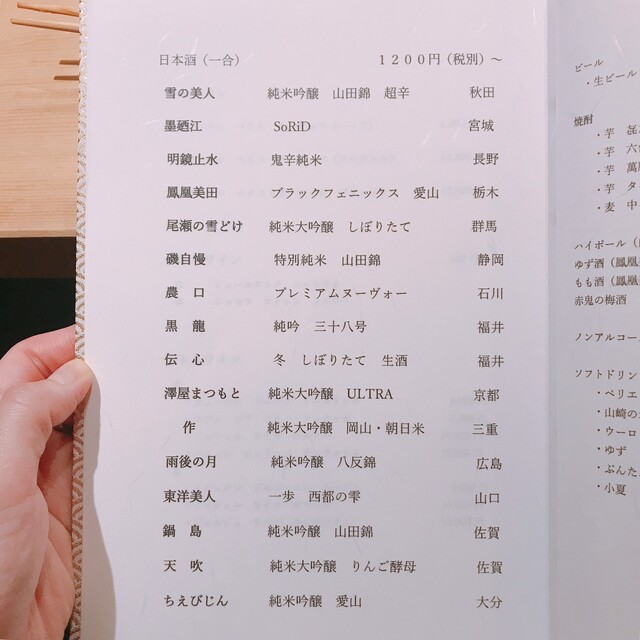 日本酒（一合） １２００円（税別）～
雪の美人 純米吟醸 山田錦 超辛 秋田
墨廼江 SoRiD 宮城
明鏡止水 鬼辛純米 長野
鳳凰美田 ブラックフェニックス 愛山 栃木
尾瀬の雪どけ 純米大吟醸 しぼりたて 群馬
磯自慢 特別純米 山田錦 静岡
農 口 プレミアムヌーヴォー 石川
黒 龍 純吟 三十八号 福井
伝 心 冬 しぼりたて 生酒 福井
澤屋まつもと 純米大吟醸 ULTRA 京都
作 純米大吟醸 岡山・朝日米 三重
雨後の月 純米吟醸 八反錦 広島
東洋美人 一歩 西都の雫 山口
鍋 島 純米吟醸 山田錦 佐賀
天 吹 純米大吟醸 りんご酵母 佐賀
ちえびじん 純米吟醸 愛山 大分
ビール
・生ビール
焼酎
・芋
・芋 六
・芋 萬
・芋 タ
・麦 中
ハイボール（
ゆず酒（鳳凰
もも酒（鳳凰
赤鬼の梅酒
ノンアルコー
ソフトドリン
・ペリエ
・山崎の
・ウーロ
・ゆず
・ぶんた
・小夏